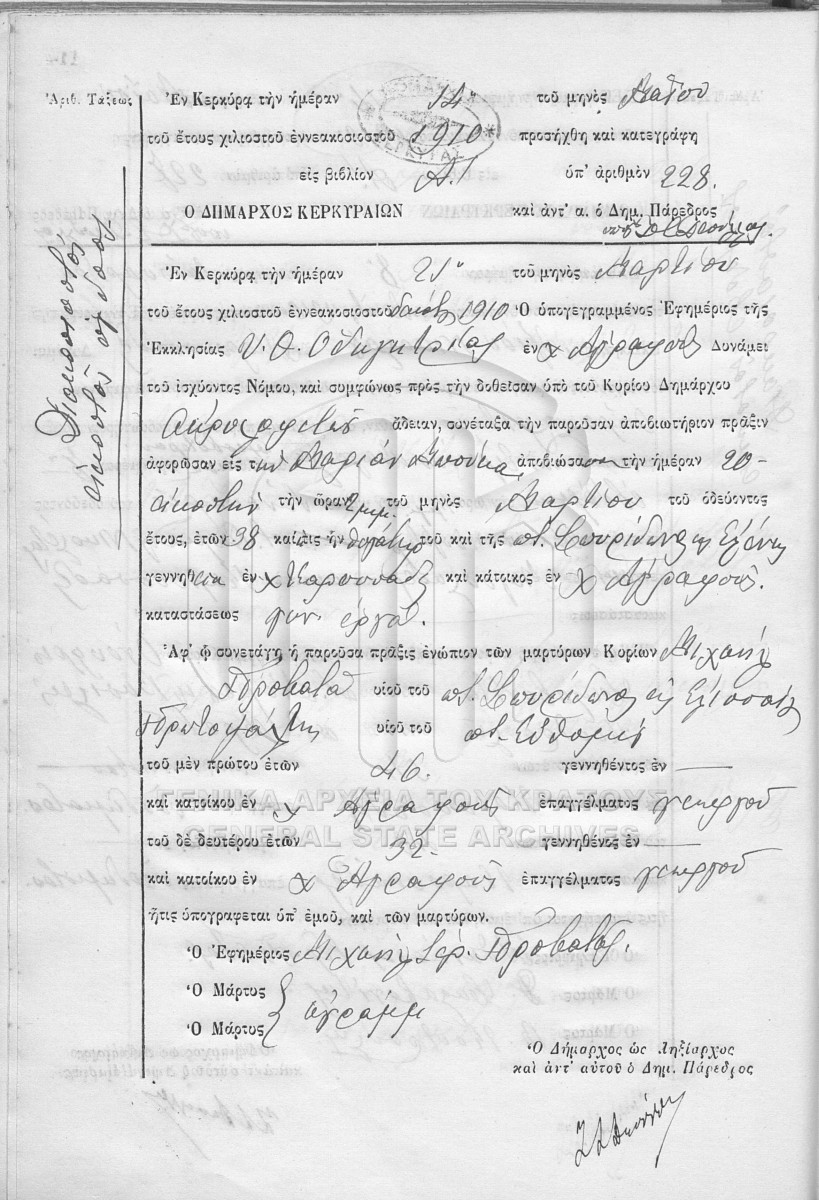 Ἀριθ. Τάξεως
Διακοσιοστὸς
εἰκοστὸς ὄγδοος
Ἐν Κερκύρᾳ τὴν ἡμέραν 14 τοῦ μηνὸς Μαΐου
τοῦ ἔτους χιλιοστοῦ ἐννεακοσιοστοῦ 1910 προσήχθη καὶ κατεγράφη
εἰς βιβλίον Α! ὑπ' ἀριθμὸν 228.
Ο ΔΗΜΑΡΧΟΣ ΚΕΡΚΥΡΑΙΩΝ καὶ ἀντ' α. ὁ Δημ. Πάρεδρος
Ἐν Κερκύρᾳ τὴν ἡμέραν 21 τοῦ μηνὸς Μαρτίου
τοῦ ἔτους χιλιοστοῦ ἐννεακοσιοστοῦ δεκάτου 1910 Ὁ ὑπογεγραμμένος Ἐφημέριος τῆς
Ἐκκλησίας Υ. Θ. Οδηγητρίας ἐν χ Ἀγραφοὺς Δυνάμει
τοῦ ἰσχύοντος Νόμου, καὶ συμφώνως πρὸς τὴν δοθεῖσαν ὑπὸ τοῦ Κυρίου Δημάρχου
ἄδειαν, συνέταξα τὴν παροῦσαν ἀποβιωτήριον πρᾶξιν
ἀφορῶσαν εἰς τὴν Μαρίαν ἀποβιώσασαν τὴν ἡμέραν 20-
εἰκοστὴν τὴν ὥραν 2 μ.μ. τοῦ μηνὸς Μαρτίου τοῦ ὁδεύοντος
ἔτους, ἐτῶν 38 καὶ τις ἦν θυγάτηρ τοῦ καὶ τῆς ποτ. Σπυρίδωνος κ Ἑλένης
γεννηθεῖσα ἐν χ Καρουσάδες καὶ κάτοικος ἐν χ Ἀγραφούς.
καταστάσεως γυν. ἐργάτ.
Ἀφ' ᾧ συνετάγη ἡ παροῦσα πρᾶξις ἐνώπιον τῶν μαρτύρων Κυρίων Μιχαὴλ
Προβατᾶ υἱοῦ τοῦ ποτ. Σπυρίδωνος κ
Πρωτοψάλτης υἱοῦ τοῦ ποτ. Εὐθυμίου
τοῦ μὲν πρώτου ἐτῶν 46. γεννηθέντος ἐν —
καὶ κατοίκου ἐν χ Ἀγραφοὺς ἐπαγγέλματος γεωργοῦ
τοῦ δὲ δευτέρου ἐτῶν 32- γεννηθένος ἐν —
καὶ κατοίκου ἐν χ Ἀγραφοὺς ἐπαγγέλματος γεωργοῦ
ἥτις ὑπογραφεται ὑπ' ἐμοῦ, καὶ τῶν μαρτύρων.
Ὁ Ἐφημέριος Μιχαὴλ Ἱερ. Προβατᾶς.
Ὁ Μάρτυς
Ὁ Μάρτυς } ἀγράμμ
Ὁ Δήμαρχος ὡς Ληξίαρχος
καὶ ἀντ' αὐτοῦ ὁ Δημ. Πάρεδρος
ΓΕΝΙΚΑ ΑΡΧΕΙΑ ΤΟΥ ΚΡΑΤΟΥΣ
GENERAL STATE ARCHIVES